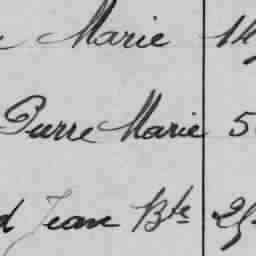 Marie
Pierre Marie 5
Jean Bte 25